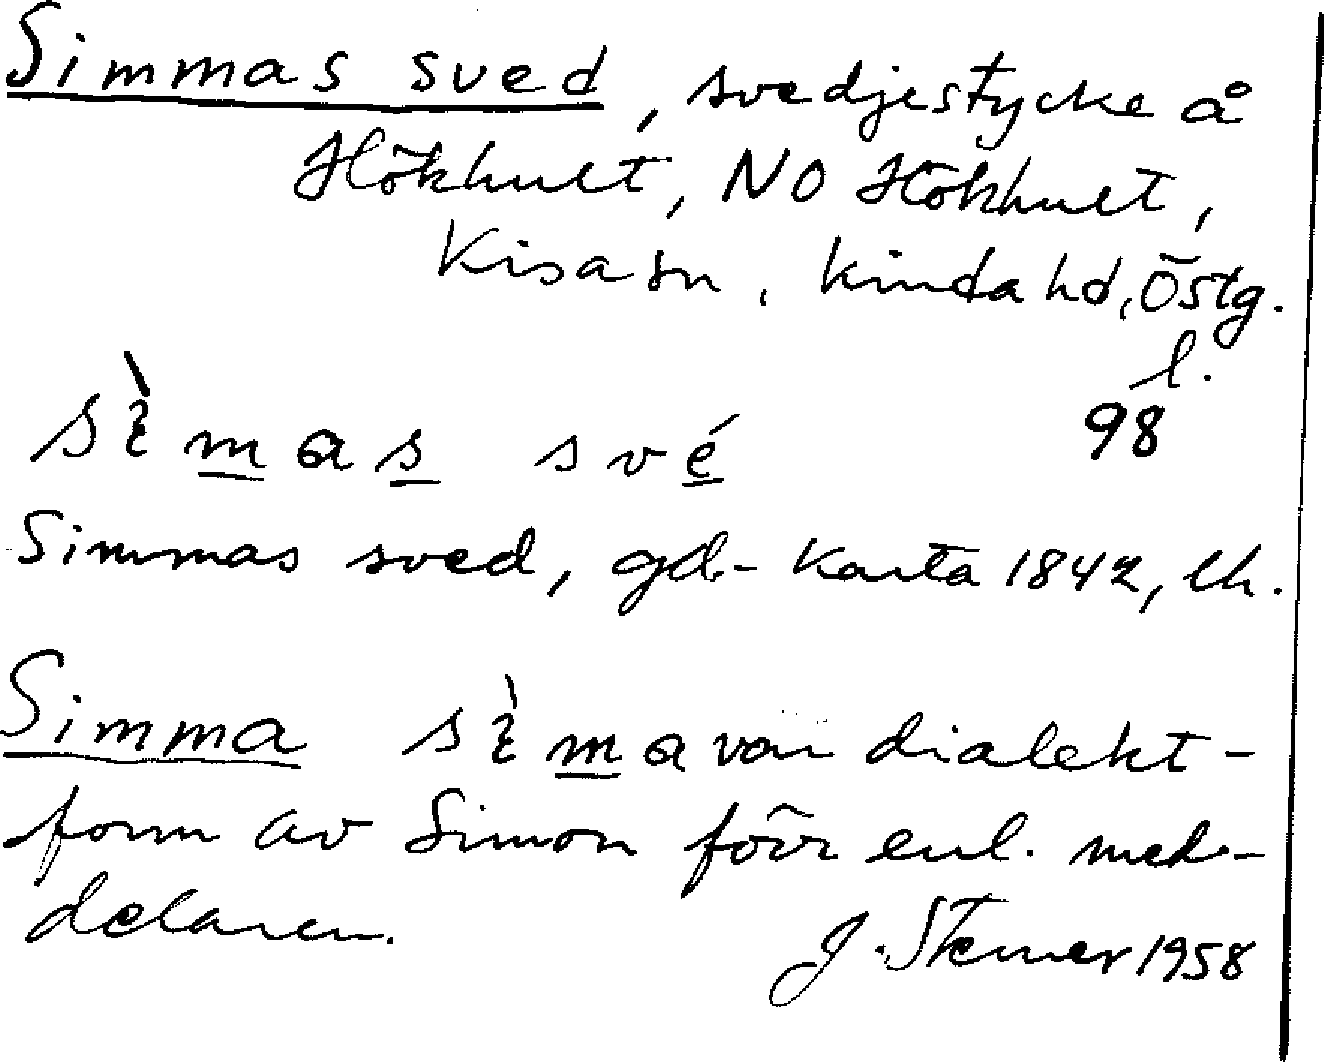 Simmas sved, svedjestycke å
Hökhult, NO Hökhult,
Kisa sn, Kinda hd, Östg.
l.
98
sì mas své
Simmas sved, gd.- Karta 1842, lh.
Simma sì ma var dialekt-
form av Simon förr enl. med-
delaren.
J. Stemer 1958